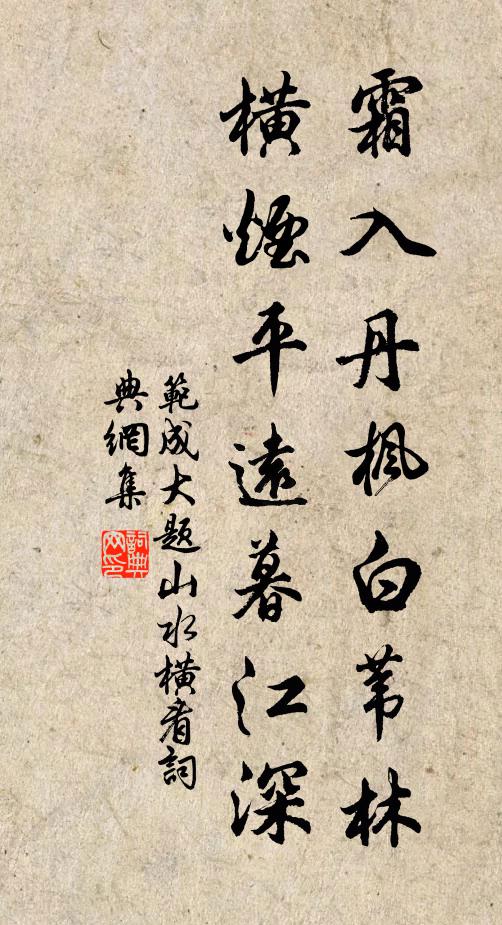 霜入丹楓白葦林
橫煙平遠暮江深
範成大題山水橫看詞
典網集
詞典网印